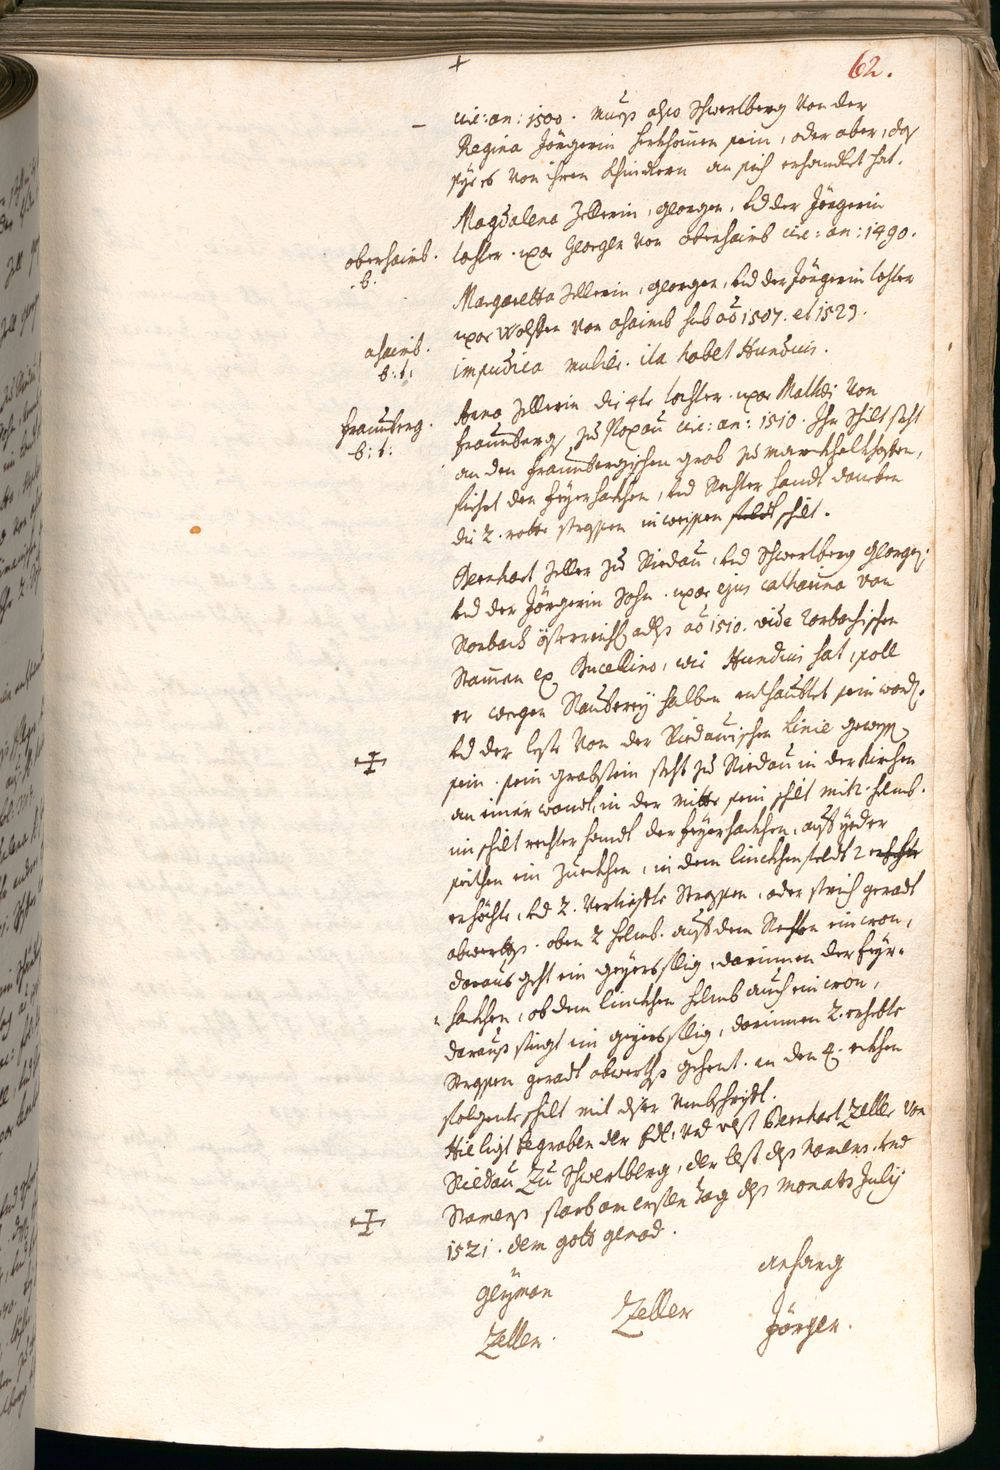 +
62.
– circ: an: 1500. mueß also Schwertberg von der
Regina Jörgerin herkhomen sein, oder aber, das
sys es von ihren Khindern an sich erhandlet hat.
Magdalena Zellerin, Georgen, und der Jörgerin
oberhaimb. b.
tochter. uxor Georgen von oberhaimb circ: an: 1490.
Margaretta Zellerin, Georgen, und der Jörgerin tochter
uxor Wolffen von ahaimb sub ao 1507. et 1529.
ahaimb. b: t:
impudica mulier. ita habet Hundius.
Anna Zellerin die 4te tochter. uxor Mathei von
fraunberg. b: t:
fraunberg, zu Poxau circ: an: 1510. Ihr Schilt steht
an den fraunbergischen grab zu marckhalkhofen,
fiehrt den feyrhackhen, und Rechter handt daneben
die 2. rotte strassen in weissen feldt schilt.
Bernhart Zeller zu Riedau, und Schwertberg Georgens
und der Jörgerin Sohn. uxor ejus Catharina von
Rorbach österreichs adls ao 1510. vide rorbachischen
Stamen ex Bucellino, wie Hundius hat, soll
er wegen Rauberey halben enthaubtet sein word.
und der leste von der Riedauischen Linie gewest
sein. sein grabstein steht zu Riedau in der Kirchen
an einer wandt, in der mitte sein schilt mit 2. helmb.
im schilt rechter handt der feyerhackhen, auff yeder
seithen ein Zückhen, in dem linckhen feldt 2 erhehte
erhöchte, und 2. vertieffte Strassen, oder strich geradt
abwerths. oben 2 helmb. auff dem Rechten ein cron,
daraus geht ein geyersflig, darinnen der feyr-
hackhen, ob dem linckhen helmb auch ein cron,
darauß steigt ein geyersflig, darinnen 2. erhebte
Strassen geradt abwerths gehent. an den 4. eckhen
folgente schilt mit diser Umbschrifft.
Hie ligt begraben der Edl, und vest Bernhart Zeller von
Riedau Zu Schwertberg, der lest deß namens und
Stamens starb am ersten tag deß monats Julij
1521. dem gott genad.
anhang
Geyman
Zeller
Jörger.
Zeller.